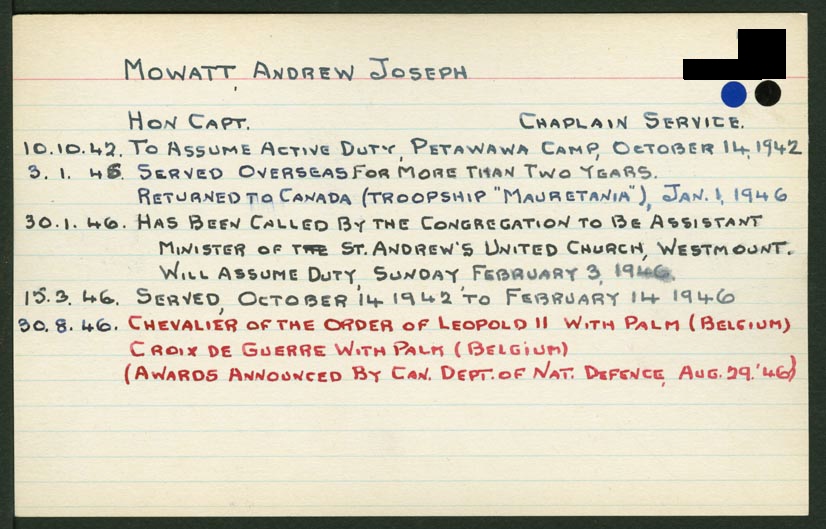 MOWATT, ANDREW JOSEPH
HON CAPT. CHAPLAIN SERVICE.
10.10.42. TO ASSUME ACTIVE DUTY, PETAWAWA CAMP, OCTOBER 14, 1942
3. 1. 46. SERVED OVERSEAS FOR MORE THAN TWO YEARS.
RETURNED TO CANADA (TROOPSHIP "MAURETANIA"), JAN. 1, 1946
30.1.46. HAS BEEN CALLED BY THE CONGREGATION TO BE ASSISTANT
MINISTER OF THE ST. ANDREW'S UNITED CHURCH, WESTMOUNT.
WILL ASSUME DUTY, SUNDAY, FEBRUARY 3, 1946.
15.3.46. SERVED, OCTOBER 14 1942 TO FEBRUARY 14 1946
30.8.46. CHEVALIER OF THE ORDER OF LEOPOLD II WITH PALM (BELGIUM)
CROIX DE GUERRE WITH PALM (BELGIUM)
(AWARDS ANNOUNCED BY CAN. DEPT. OF NAT. DEFENCE, AUG. 29. '46)